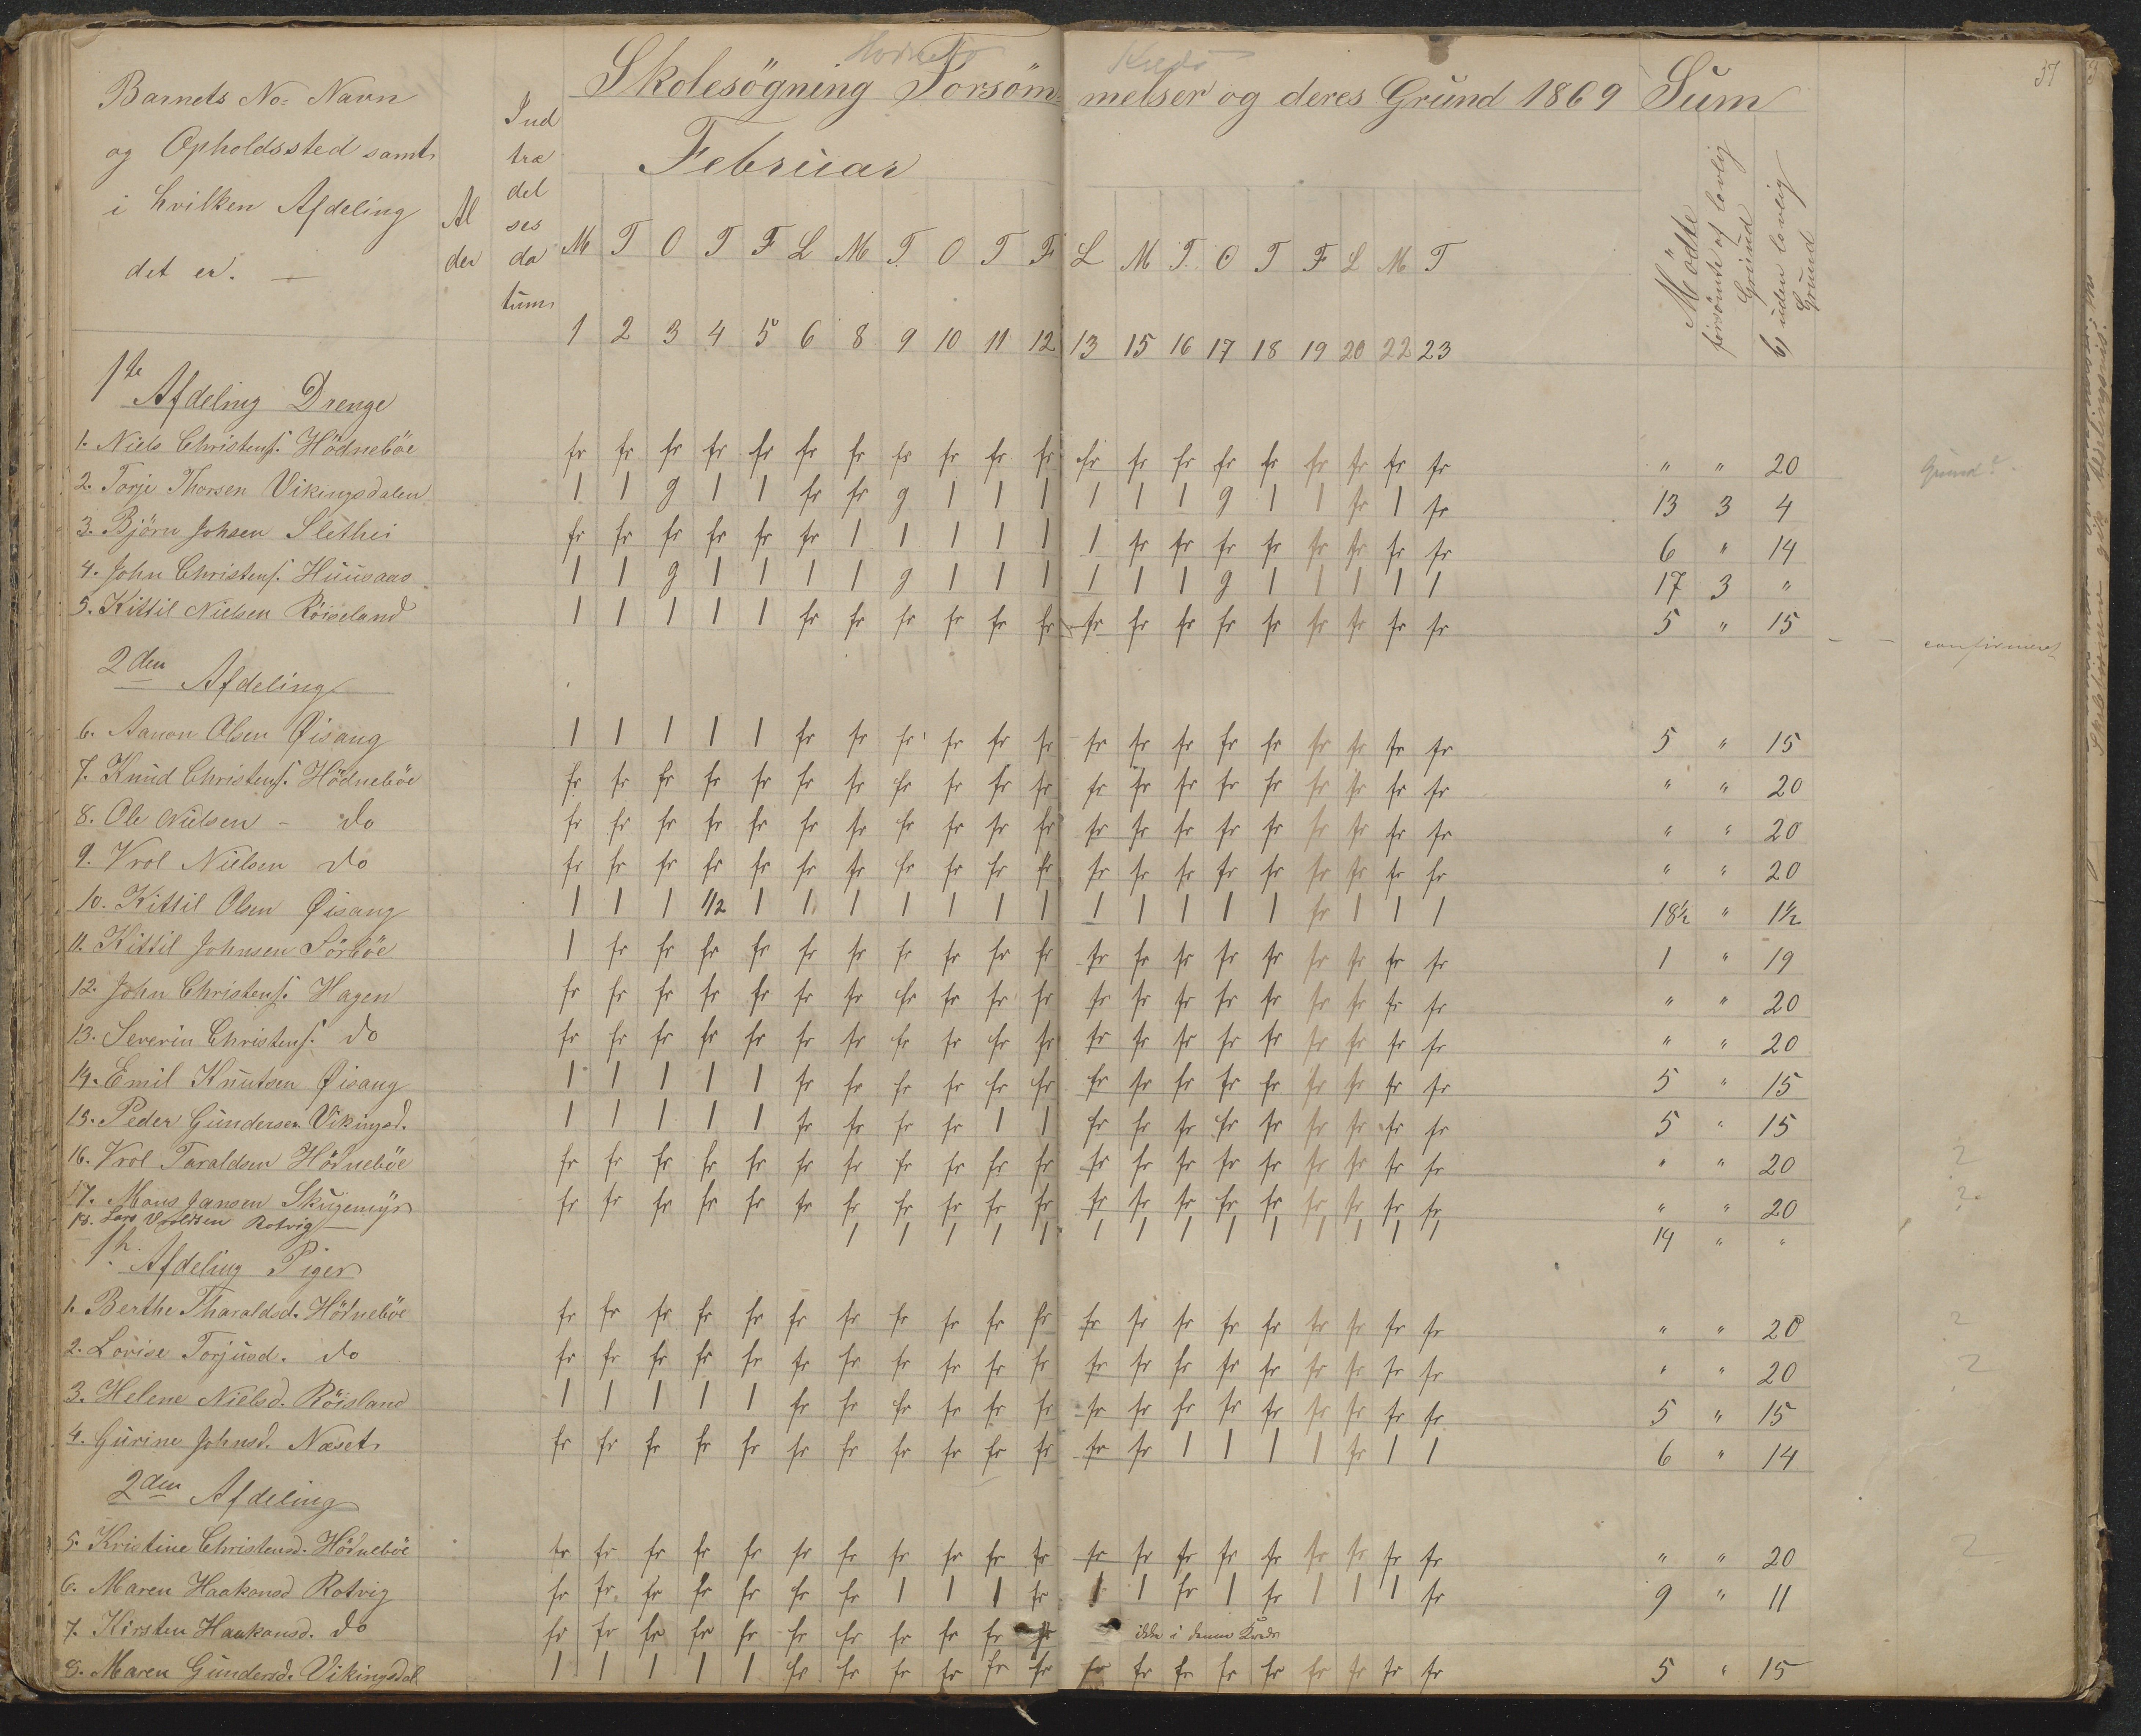 Kreds
37
Skolesögning Forsöm- melser og deres Grund 1869 Sum
Februar
Barnets No= Navn
og Opholdssted samt
i hvilken Afdeling
det er. —
Al
der
Ind
træ
del
ses
da
tum
Mödte
forsömte af lovlig
Grund
b) uden lovlig
Grund
M T O T F L M T O T F L M T O T F L M T
1 2 3 4 5 6 8 9 10 11 12 13 15 16 17 18 19 20 22 23
1te Afdeling Drenge
1. Niels Christens. Hödneböe fr fr fr fr fr fr fr fr fr fr fr fr fr fr fr fr fr fr fr fr " " 20 Grund?
2. Torje Thorsen Vikingsdalen 1 1 g 1 1 fr fr g 1 1 1 1 1 1 g 1 1 fr 1 fr 13 3 4
3. Björn Johsen Slethei fr fr fr fr fr fr 1 1 1 1 1 1 fr fr fr fr fr fr fr fr 6 " 14
4. John Christens. Huusaas 1 1 g 1 1 1 1 g 1 1 1 1 1 1 g 1 1 1 1 1 17 3 "
5. Kittil Nielsen Röiseland 1 1 1 1 1 fr fr fr fr fr fr fr fr fr fr fr fr fr fr fr 5 " 15 — — confirmeret
2den Afdeling
6. Aanon Olsen Øisang 1 1 1 1 1 fr fr fr fr fr fr fr fr fr fr fr fr fr fr fr 5 " 15
7. Knud Christens. Hödneböe fr fr fr fr fr fr fr fr fr fr fr fr fr fr fr fr fr fr fr fr " " 20
8. Ole Nielsen - do fr fr fr fr fr fr fr fr fr fr fr fr fr fr fr fr fr fr fr fr " " 20
9. Vrol Nielsen do fr fr fr fr fr fr fr fr fr fr fr fr fr fr fr fr fr fr fr fr " " 20
10. Kittil Olsen Øisang 1 1 1 1/2 1 1 1 1 1 1 1 1 1 1 1 1 fr 1 1 1 18½ " 1½
11. Kittil Johnsen Sörböe 1 fr fr fr fr fr fr fr fr fr fr fr fr fr fr fr fr fr fr fr 1 " 19
12. John Christens. Hagen fr fr fr fr fr fr fr fr fr fr fr fr fr fr fr fr fr fr fr fr " " 20
13. Severin Christens. do fr fr fr fr fr fr fr fr fr fr fr fr fr fr fr fr fr fr fr fr " " 20
14. Emil Knutsen Øisang 1 1 1 1 1 fr fr fr fr fr fr fr fr fr fr fr fr fr fr fr 5 " 15
15. Peder Gundersen Vikingsd. 1 1 1 1 1 fr fr fr fr 1 1 fr fr fr fr fr fr fr fr fr 5 " 15
16. Vrol Taraldsen Hödneböe fr fr fr fr fr fr fr fr fr fr fr fr fr fr fr fr fr fr fr fr " " 20 ?
17. Mons Jansen Skugemyr fr fr fr fr fr fr fr fr fr fr fr fr fr fr fr fr fr fr fr fr " " 20 ?
18. Lars Vroldsen Rotvig 1 1 1 1 1 1 1 1 1 1 1 1 1 1 14 " "
1te Afdeling Piger
1. Berthe Tharaldsd. Hödneböe fr fr fr fr fr fr fr fr fr fr fr fr fr fr fr fr fr fr fr fr " " 20 ?
2. Lovise Torjusd. do fr fr fr fr fr fr fr fr fr fr fr fr fr fr fr fr fr fr fr fr " " 20 ?
3. Helene Nielsd. Röisland 1 1 1 1 1 fr fr fr fr fr fr fr fr fr fr fr fr fr fr fr 5 " 15
4. Gurine Johnsd. Næset fr fr fr fr fr fr fr fr fr fr fr fr fr 1 1 1 1 fr 1 1 6 " 14
2den Afdeling
5. Kristine Christensd. Hödneböe fr fr fr fr fr fr fr fr fr fr fr fr fr fr fr fr fr fr fr fr " " 20 ?
6. Maren Haakonsd Rotvig fr fr fr fr fr fr fr 1 1 1 fr 1 1 fr 1 fr 1 1 1 fr 9 " 11
7. Kirsten Haakonsd. do fr fr fr fr fr fr fr fr fr fr fr ikke i denne Kreds
8. Maren Gundersd. Vikingsdal 1 1 1 1 1 fr fr fr fr fr fr fr fr fr fr fr fr fr fr fr 5 " 15